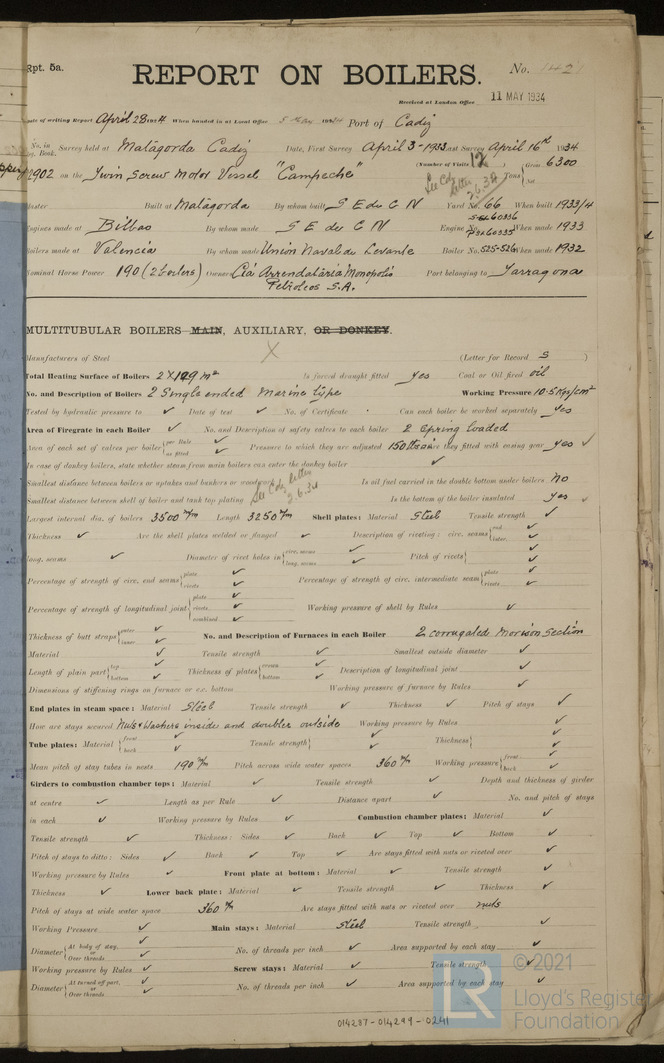 Rpt. 5a.
REPORT ON BOILERS.
No. 1421
Received at London Office 11 MAY 1934
Date of writing Report April 28 1934 When handed in at Local Office 5 May 1934 Port of Cadiz
No. in Reg. Book. Survey held at Matagorda Cadiz Date, First Survey April 3-1933 Last Survey April 16th 1934
(Number of Visits 12)
2902 on the Twin Screw Motor Vessel "Campeche" Tons Gross 6300 Net
See Cdz letter 2.6.34
Master Built at Matagorda By whom built S E de C N Yard No. 66 When built 1933/4
Engines made at Bilbao By whom made S E de C N Engine No. When made 1933
Boilers made at Valencia By whom made Union Naval de Levante Boiler No. 525-526 When made 1932
Nominal Horse Power 190 (2 boilers) Owners Cia Arrendataria Monopolio Petroleos S.A. Port belonging to Tarragona
MULTITUBULAR BOILERS MAIN, AUXILIARY, OR DONKEY.
Manufacturers of Steel (Letter for Record S)
Total Heating Surface of Boilers Is forced draught fitted yes Coal or Oil fired oil
No. and Description of Boilers 2 Single ended Marine type Working Pressure 10.5 Kgs/cm²
Tested by hydraulic pressure to ✓ Date of test ✓ No. of Certificate Can each boiler be worked separately yes
Area of Firegrate in each Boiler ✓ No. and Description of safety valves to each boiler 2 Spring loaded
Area of each set of valves per boiler {per Rule ✓ as fitted ✓ Pressure to which they are adjusted 150 lbs Are they fitted with easing gear yes ✓
In case of donkey boilers, state whether steam from main boilers can enter the donkey boiler ✓
Smallest distance between boilers or uptakes and bunkers or woodwork Is oil fuel carried in the double bottom under boilers No
See Cdz letter 2.6.34
Smallest distance between shell of boiler and tank top plating Is the bottom of the boiler insulated yes ✓
Largest internal dia. of boilers 3500 m/m Length 3250 m/m Shell plates: Material Steel Tensile strength ✓
Thickness ✓ Are the shell plates welded or flanged ✓ Description of riveting: circ. seams {end ✓ inter. ✓
long. seams ✓ Diameter of rivet holes in {circ. seams ✓ long. seams ✓ Pitch of rivets} ✓ ✓
Percentage of strength of circ. end seams {plate ✓ rivets ✓ Percentage of strength of circ. intermediate seam {plate ✓ rivets ✓
Percentage of strength of longitudinal joint {plate ✓ rivets ✓ combined ✓ Working pressure of shell by Rules ✓
Thickness of butt straps {outer ✓ inner ✓ No. and Description of Furnaces in each Boiler 2 corrugated Morison Section
Material ✓ Tensile strength ✓ Smallest outside diameter ✓
Length of plain part {top ✓ bottom ✓ Thickness of plates {crown ✓ bottom ✓ Description of longitudinal joint ✓
Dimensions of stiffening rings on furnace or c.c. bottom Working pressure of furnace by Rules ✓
End plates in steam space: Material Steel Tensile strength ✓ Thickness ✓ Pitch of stays ✓
How are stays secured Nuts & Washers inside and doubler outside Working pressure by Rules ✓
Tube plates: Material {front ✓ back ✓ Tensile strength} ✓ Thickness} ✓
Mean pitch of stay tubes in nests 190 m/m Pitch across wide water spaces 360 m/m Working pressure {front ✓ back ✓
Girders to combustion chamber tops: Material ✓ Tensile strength ✓ Depth and thickness of girder
at centre ✓ Length as per Rule ✓ Distance apart ✓ No. and pitch of stays
in each ✓ Working pressure by Rules ✓ Combustion chamber plates: Material ✓
Tensile strength ✓ Thickness: Sides ✓ Back ✓ Top ✓ Bottom ✓
Pitch of stays to ditto: Sides ✓ Back ✓ Top ✓ Are stays fitted with nuts or riveted over ✓
Working pressure by Rules ✓ Front plate at bottom: Material ✓ Tensile strength ✓
Thickness ✓ Lower back plate: Material ✓ Tensile strength ✓ Thickness ✓
Pitch of stays at wide water space 360 m/m Are stays fitted with nuts or riveted over nuts
Working Pressure ✓ Main stays: Material Steel Tensile strength ✓
Diameter {At body of stay, ✓ or Over threads ✓ No. of threads per inch ✓ Area supported by each stay ✓
Working pressure by Rules ✓ Screw stays: Material ✓ Tensile strength ✓
Diameter {At turned off part, ✓ or Over threads ✓ No. of threads per inch ✓ Area supported by each stay ✓
014287-014299-0241
LR
© 2021
Lloyd's Register
Foundation